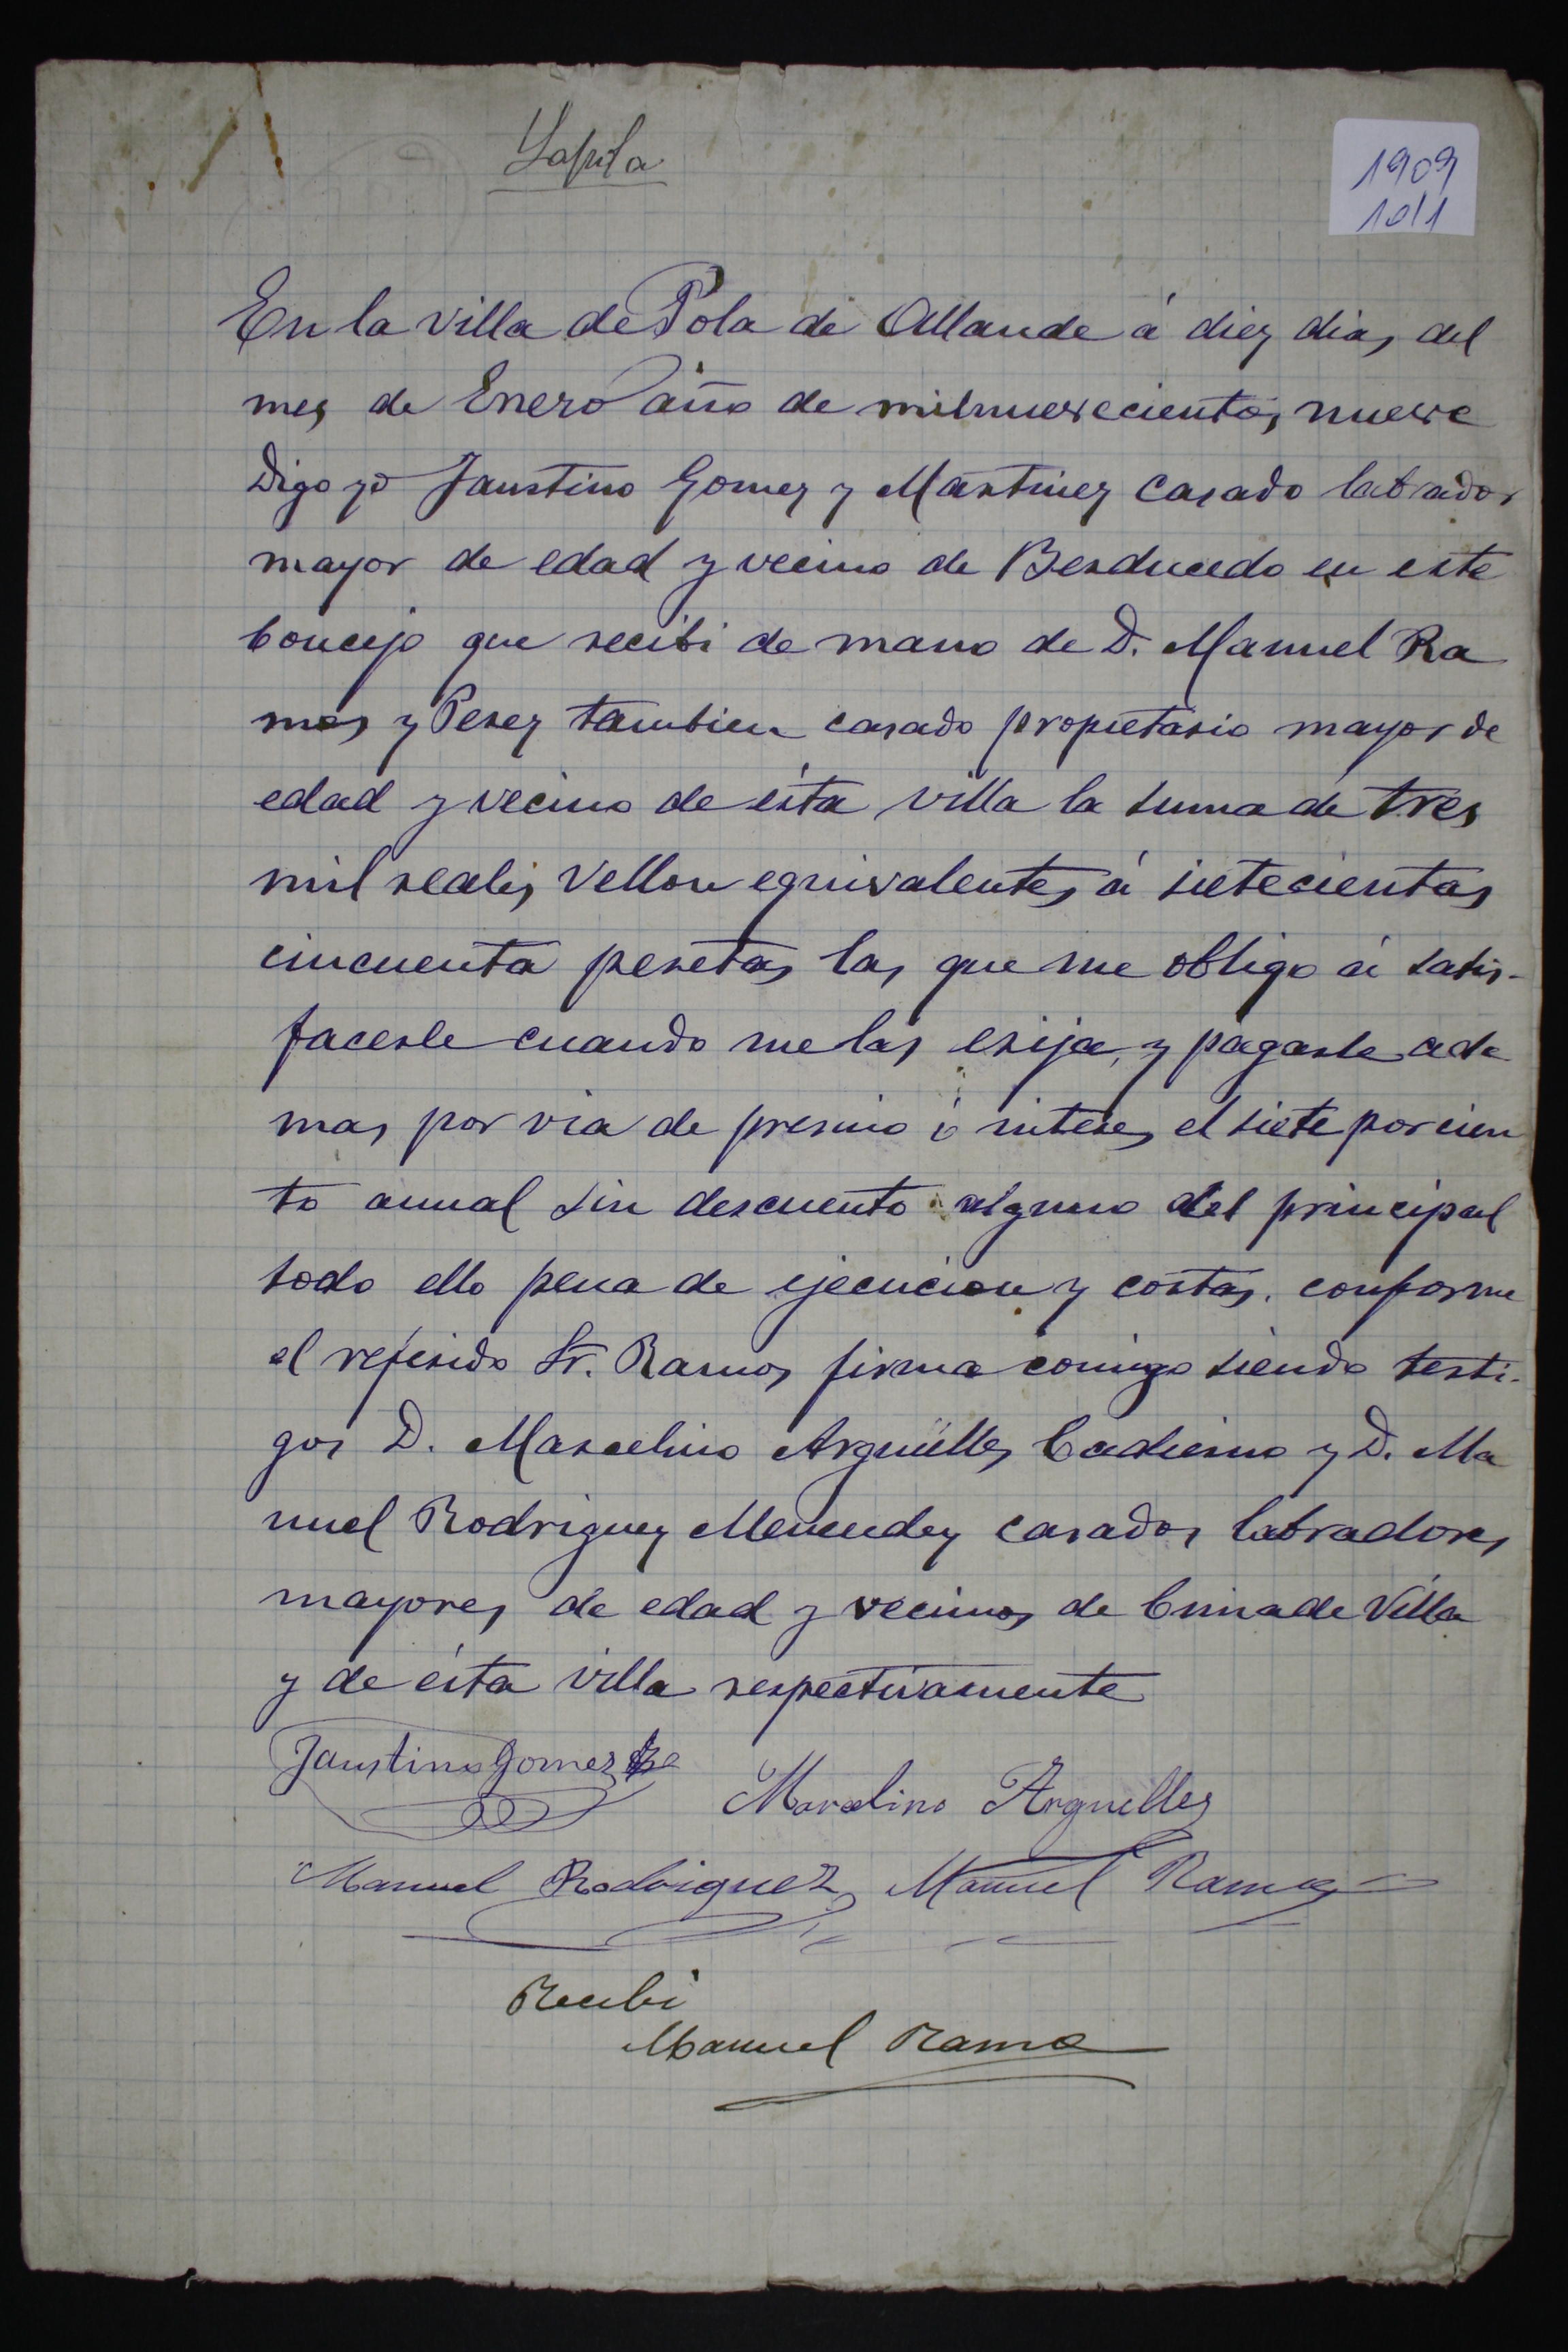 Lapila
1909
10/1
En la villa de Pola de Allande á diez dias del
mes de Enero año de milnuevecientos nueve
Digo yo Faustino Gomez y Martinez casado labrador
mayor de edad y vecino de Berducedo en este
Concejo que recibi de mano de D. Manuel Ra
mos y Perez tambien casado propietario mayor de
edad y vecino de ésta villa la suma de tres
mil reales vellon equivalentes á sietecientas
cincuenta pesetas las que me obligo á satis-
facerle cuando me las exija, y pagarle ade
mas por via de premio ó interes el siete por cien
to anual sin descuento alguno del principal
todo ello pena de ejecucion y costas. conforme
el referido Sr. Ramos firma comigo siendo testi-
gos D. Marcelino Argüelles Cadierno y D. Ma
nuel Rodriguez Menendez casados labradores
mayores de edad y vecinos de Cimadevilla
y de ésta villa respectivamente
Faustino Gomez
Marcelino Arguelles
Manuel Rodriguez Manuel Ramos
Recibi
Manuel Ramos